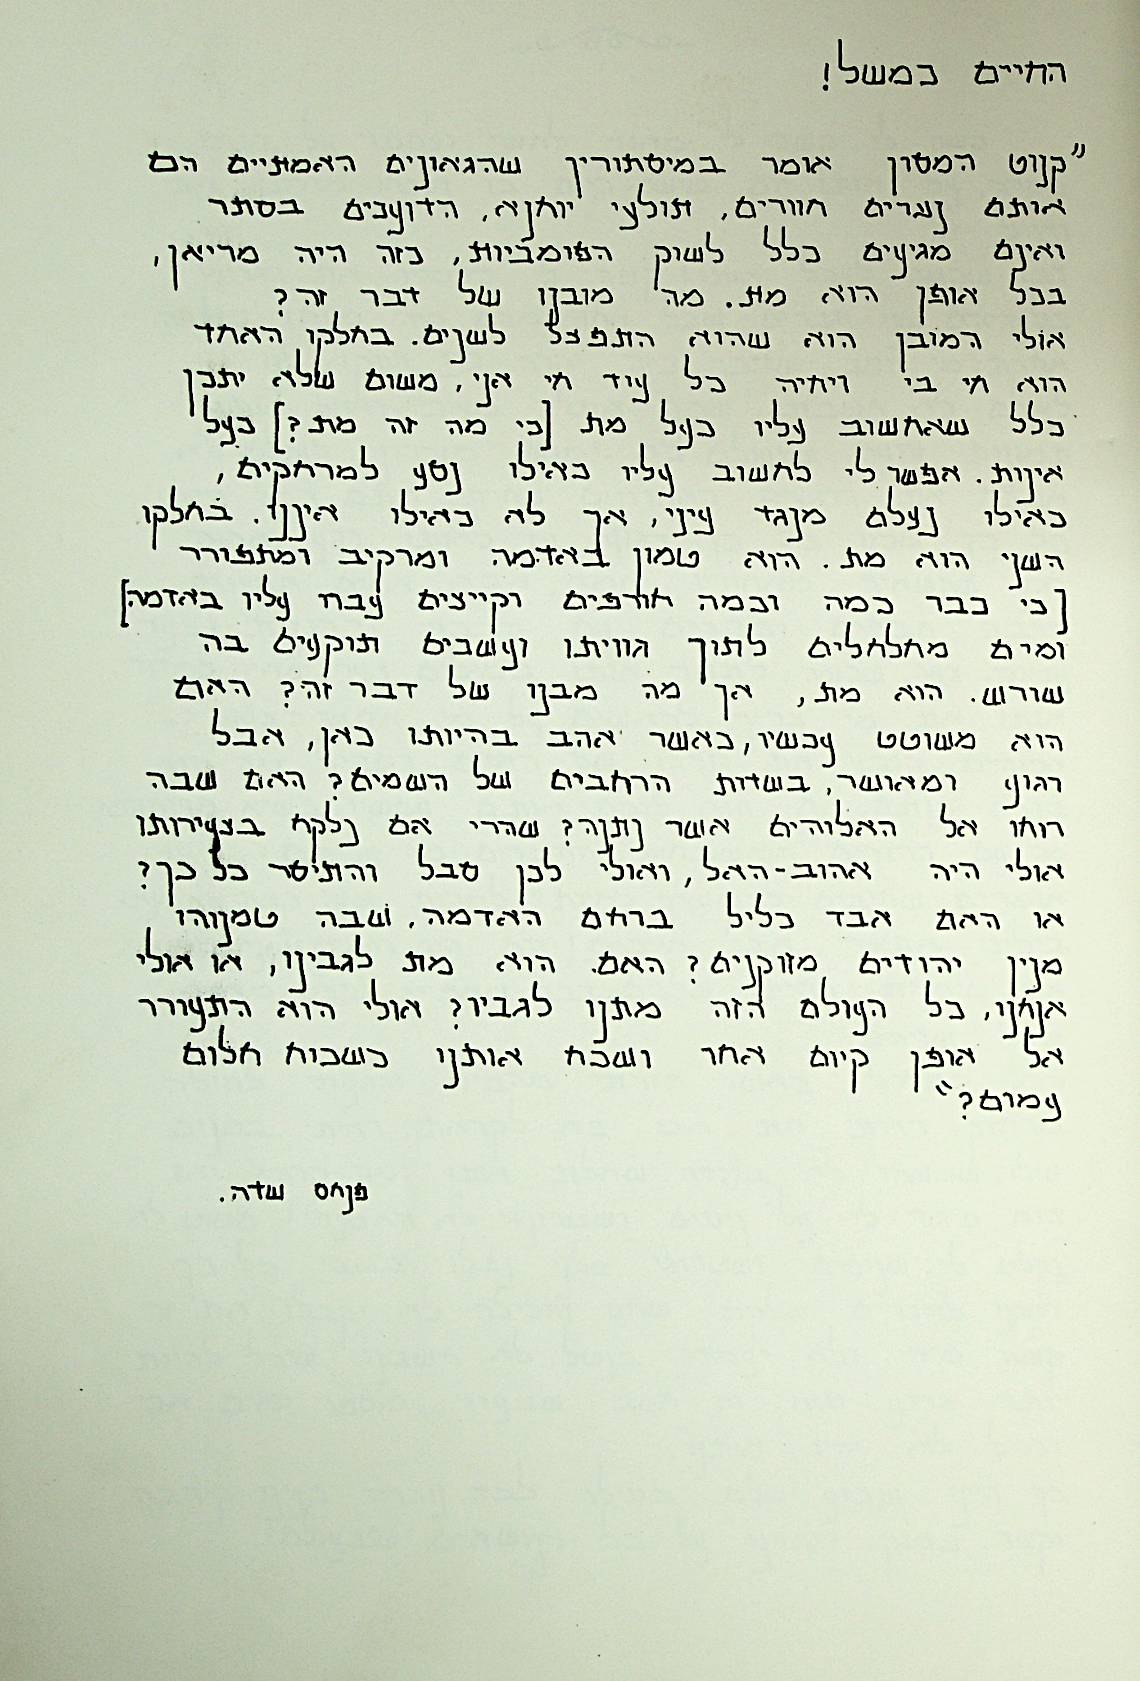 החיים כמשל!
"קנוט המסון אומר במיסתורין שהגאונים האמתיים הם
אותם נערים חוורים, תולעי יוחנא, הדועכים בסתר
ואינם מגיעים כלל לשוק הפומביות, כזה היה מריאן,
בכל אופן הוא מת. מה מובנו של דבר זה?
אולי המובן הוא שהוא התפצל לשנים. בחלקו האחד
הוא חי בי ויחיה כל עוד חי אני, משום שלא יתכן
כלל שאחשוב עליו כעל מת [כי מה זה מת?] כעל
אינות. אפשר לי לחשוב עליו כאילו נסע למרחקים,
כאילו נעלם מנגד עיני, אך לא כאילו איננו. בחלקו
השני הוא מת. הוא טמון באדמה ומרקיב ומתפורר
[כי כבר כמה וכמה חורפים וקייצים עברו עליו באדמה]
ומים מחלחלים לתוך גוויתו ועשבים תוקעים בה
שורש. הוא מת, אך מה מבנו של דבר זה? האם
הוא משוטט עכשיו, כאשר אהב בהיותו כאן, אבל
רגוע ומאושר, בשדות הרחבים של השמים? האם שבה
רוחו אל האלוהים אשר נתנה? שהרי אם נלקח בצעירותו
אולי היה אהוב-האל, ואולי לכן סבל והתיסר כל כך?
או האם אבד כליל ברחם האדמה, שבה טמנוהו
מנין יהודים מזוקנים? האם. הוא מת לגבינו, או אולי
אנחנו, כל העולם הזה מתנו לגביו? אולי הוא התעורר
אל אופן קיום אחר ושכח אותנו כשכוח חלום
עמום?"
פנחס שדה.